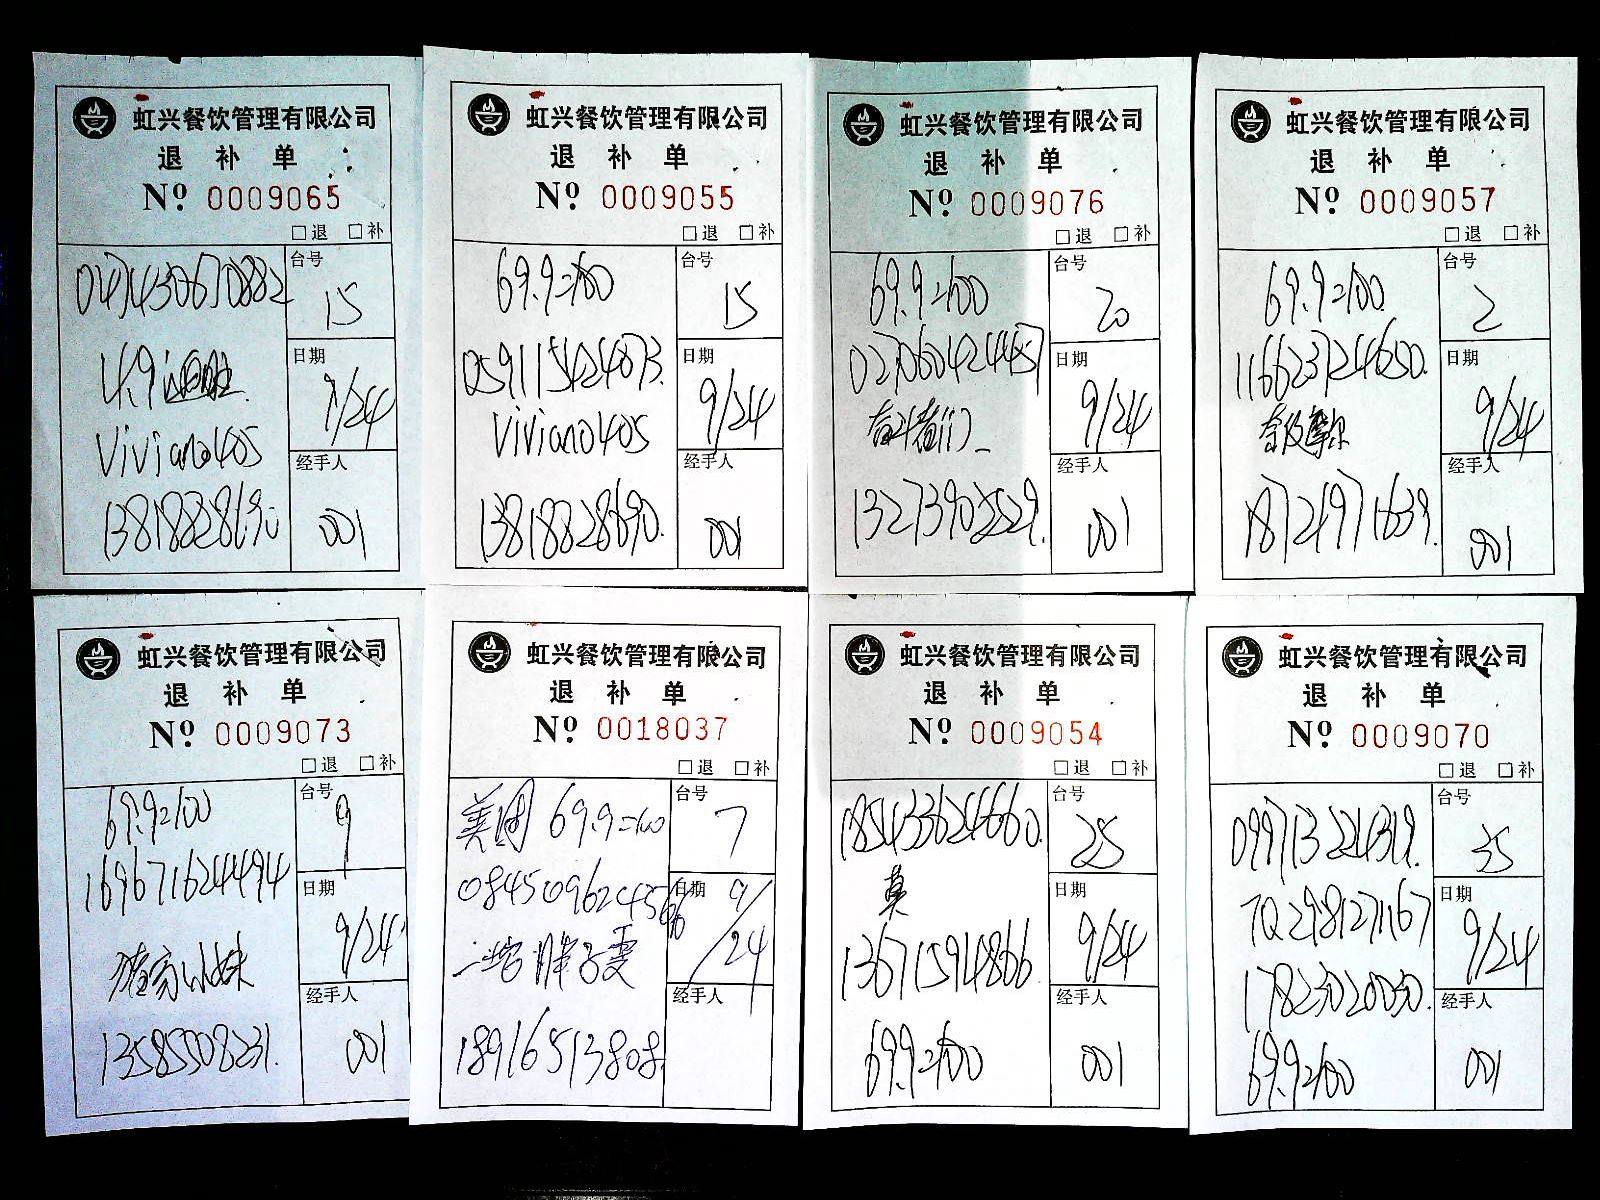 虹兴餐饮管理有限公司
退 补 单
Nº 0009065
□退 □补
台号
15
日期
9/24
Viviano405
13818828690
经手人
001
虹兴餐饮管理有限公司
退 补 单
Nº 0009055
□退 □补
69.9=100
台号
15
059115424873.
日期
9/24
Viviano405
13818828690.
经手人
001
虹兴餐饮管理有限公司
退 补 单
Nº 0009076
□退 □补
69.9=100
台号
20
027060424457
日期
9/24
奋斗者们
13273902529.
经手人
001
虹兴餐饮管理有限公司
退 补 单
Nº 0009057
□退 □补
69.9=100
台号
2
116623724650.
日期
9/24
18721971639.
经手人
001
虹兴餐饮管理有限公司
退 补 单
Nº 0009073
□退 □补
69.9=100
台号
9
169671624494
日期
9/24
13585508231.
经手人
001
虹兴餐饮管理有限公司
退 补 单
Nº 0018037
□退 □补
美团 69.9=100
台号
7
日期
9/24
18916513808.
经手人
虹兴餐饮管理有限公司
退 补 单
Nº 0009054
□退 □补
185433624660.
台号
25
莫
日期
9/24
13671594866
69.9=100
经手人
001
虹兴餐饮管理有限公司
退 补 单
Nº 0009070
□退 □补
099713224319.
台号
35
日期
9/24
17823020050.
69.9=100
经手人
001